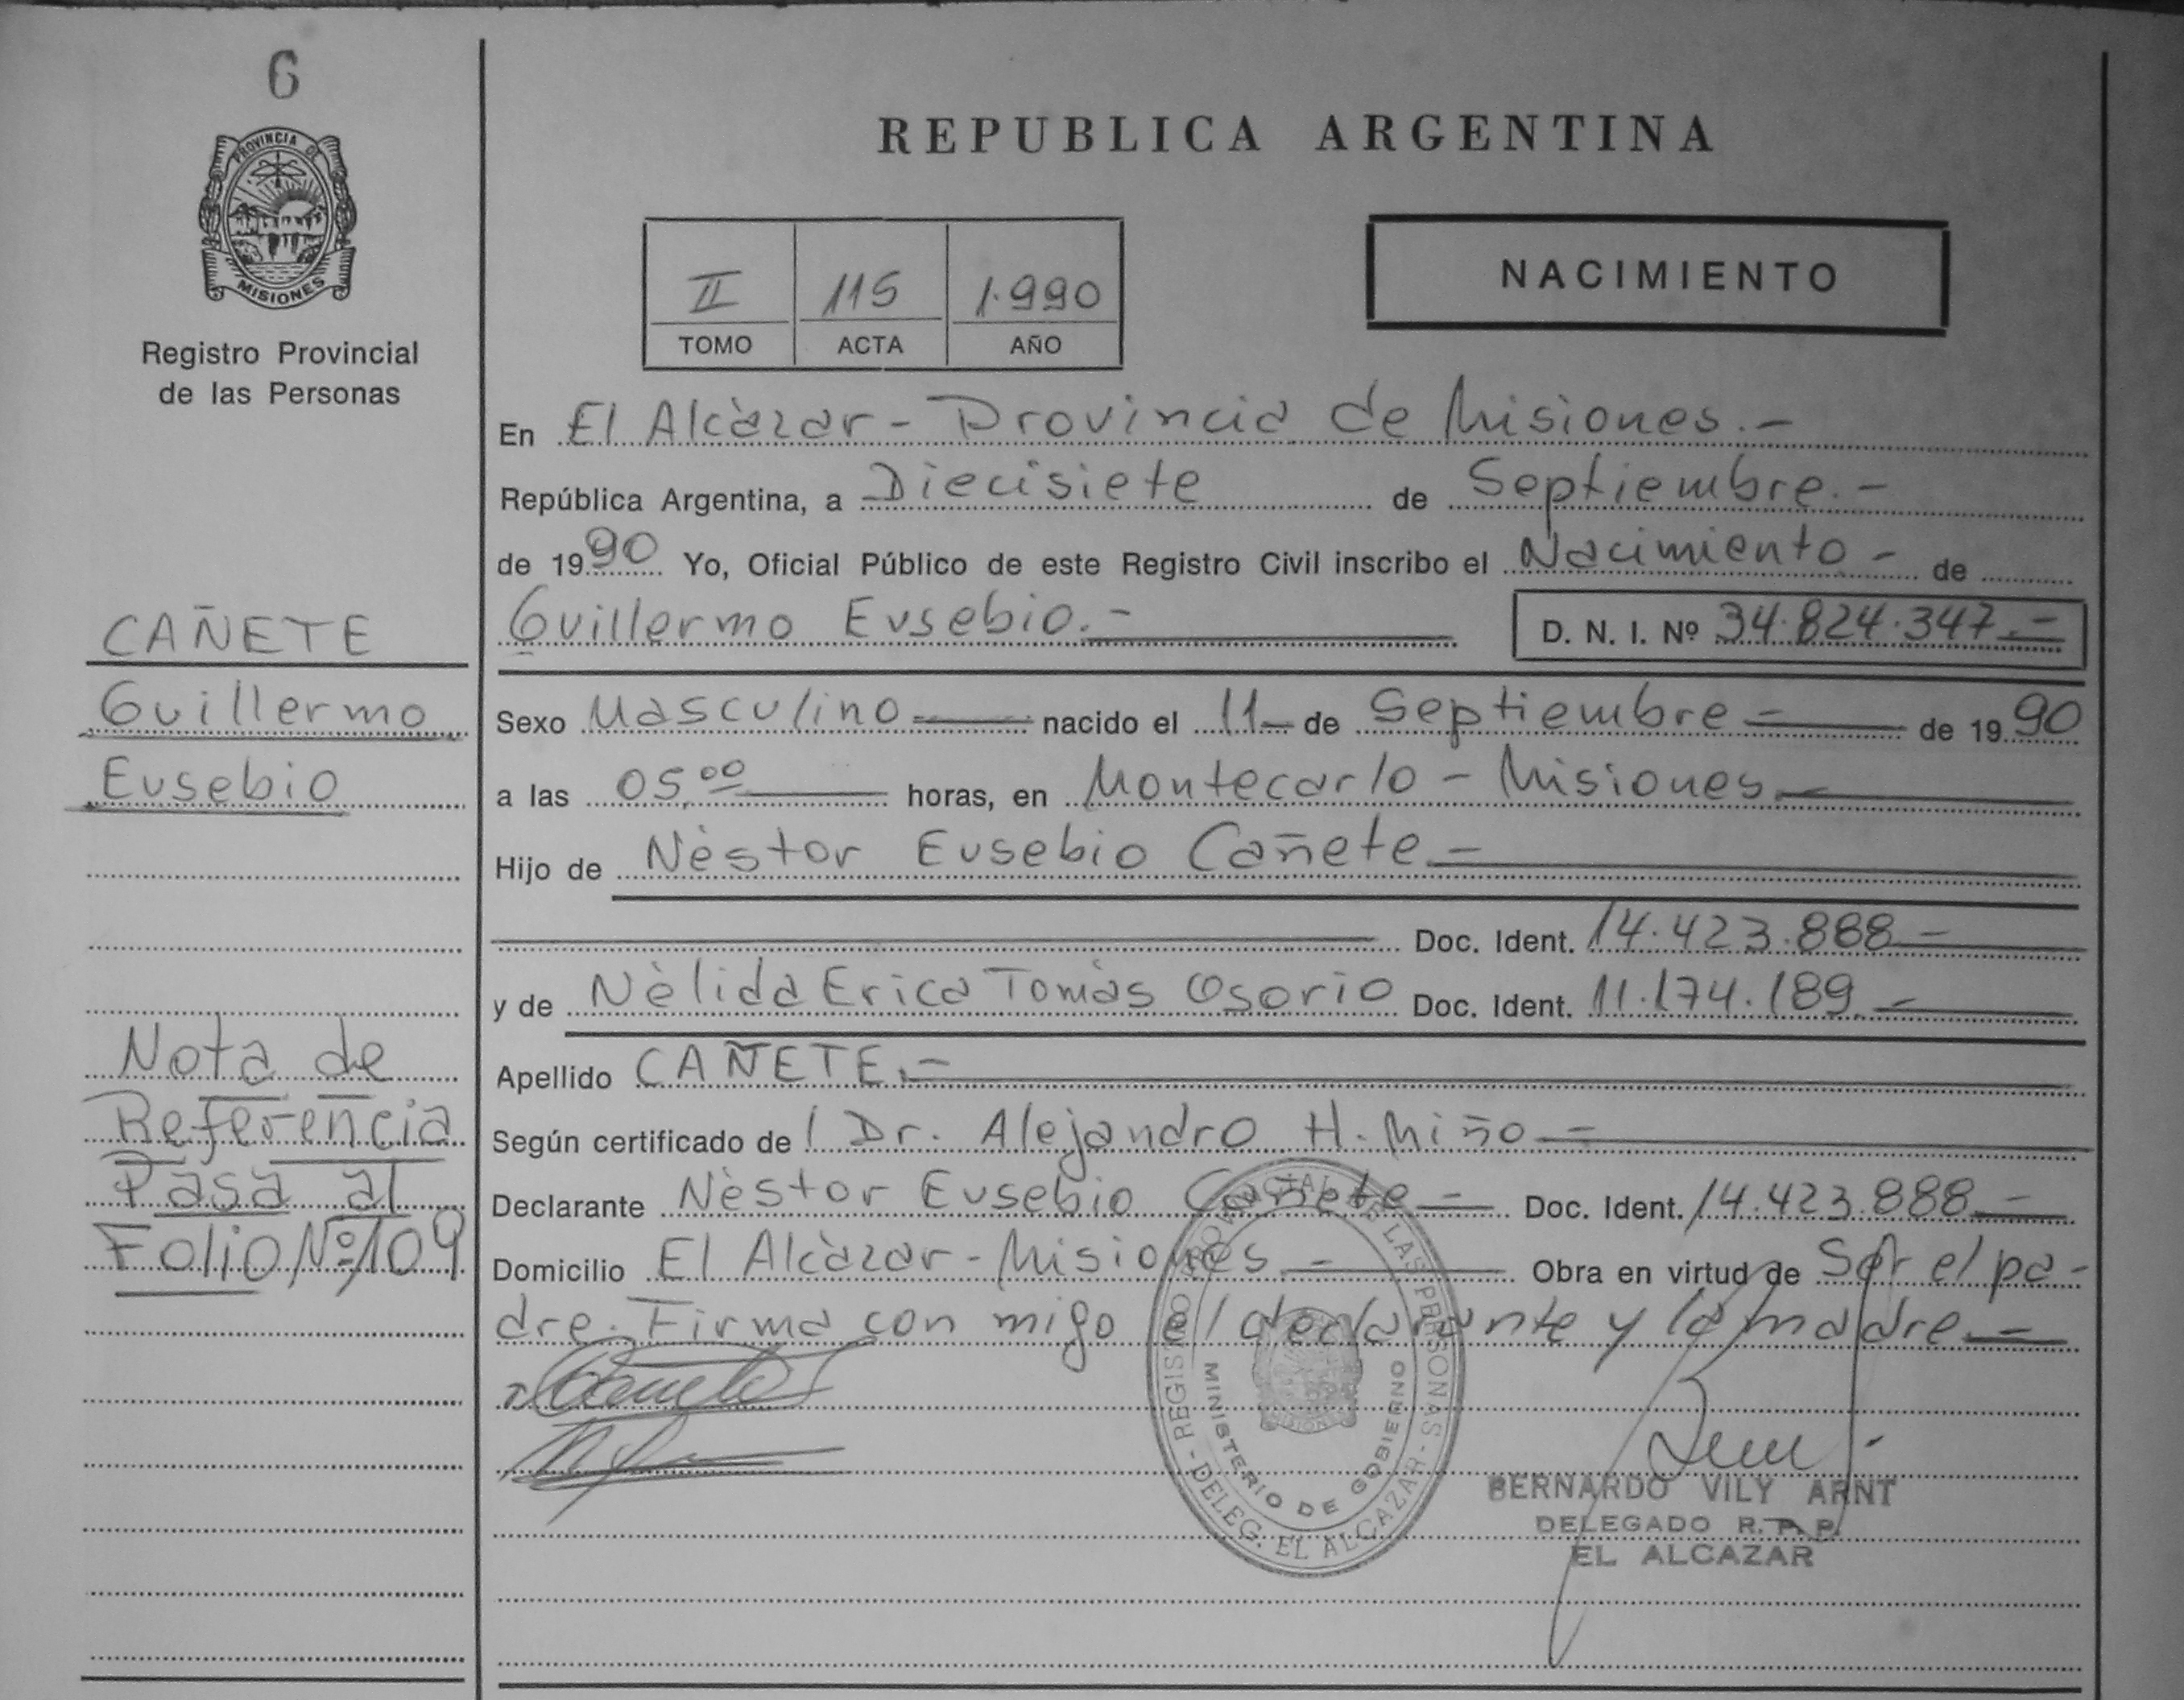 6
PROVINCIA DE
MISIONES
Registro Provincial
de las Personas
REPUBLICA ARGENTINA
II 115 1.990
TOMO ACTA AÑO
NACIMIENTO
En El Alcàzar - Provincia de Misiones.-
República Argentina, a Diecisiete de Septiembre.-
de 1990 Yo, Oficial Público de este Registro Civil inscribo el Nacimiento - de
Guillermo Eusebio.- D. N. I. Nº 34.824.347.-
CAÑETE
Guillermo
Eusebio
Sexo Masculino nacido el 11 de Septiembre - de 1990
a las 05,00 horas, en Montecarlo - Misiones
Hijo de Nèstor Eusebio Cañete.-
Doc. Ident. 14.423.888 -
y de Nèlida Erica Tomàs Osorio Doc. Ident. 11.174.189.-
Apellido CAÑETE.-
Según certificado de l Dr. Alejandro H. Miño -
Declarante Nèstor Eusebio Cañete - Doc. Ident. 14.423.888 -
Domicilio El Alcàzar - Misiones.- Obra en virtud de Ser el pa-
dre. Firma con migo el declarante y la madre.-
Nota de
Referencia
Pasa al
Folio Nº 109
REGISTRO PROVINCIAL DE LAS PERSONAS - DELEG. EL ALCAZAR -
MINISTERIO DE GOBIERNO
MISIONES
BERNARDO VILY ARNT
DELEGADO R. P. P.
EL ALCAZAR